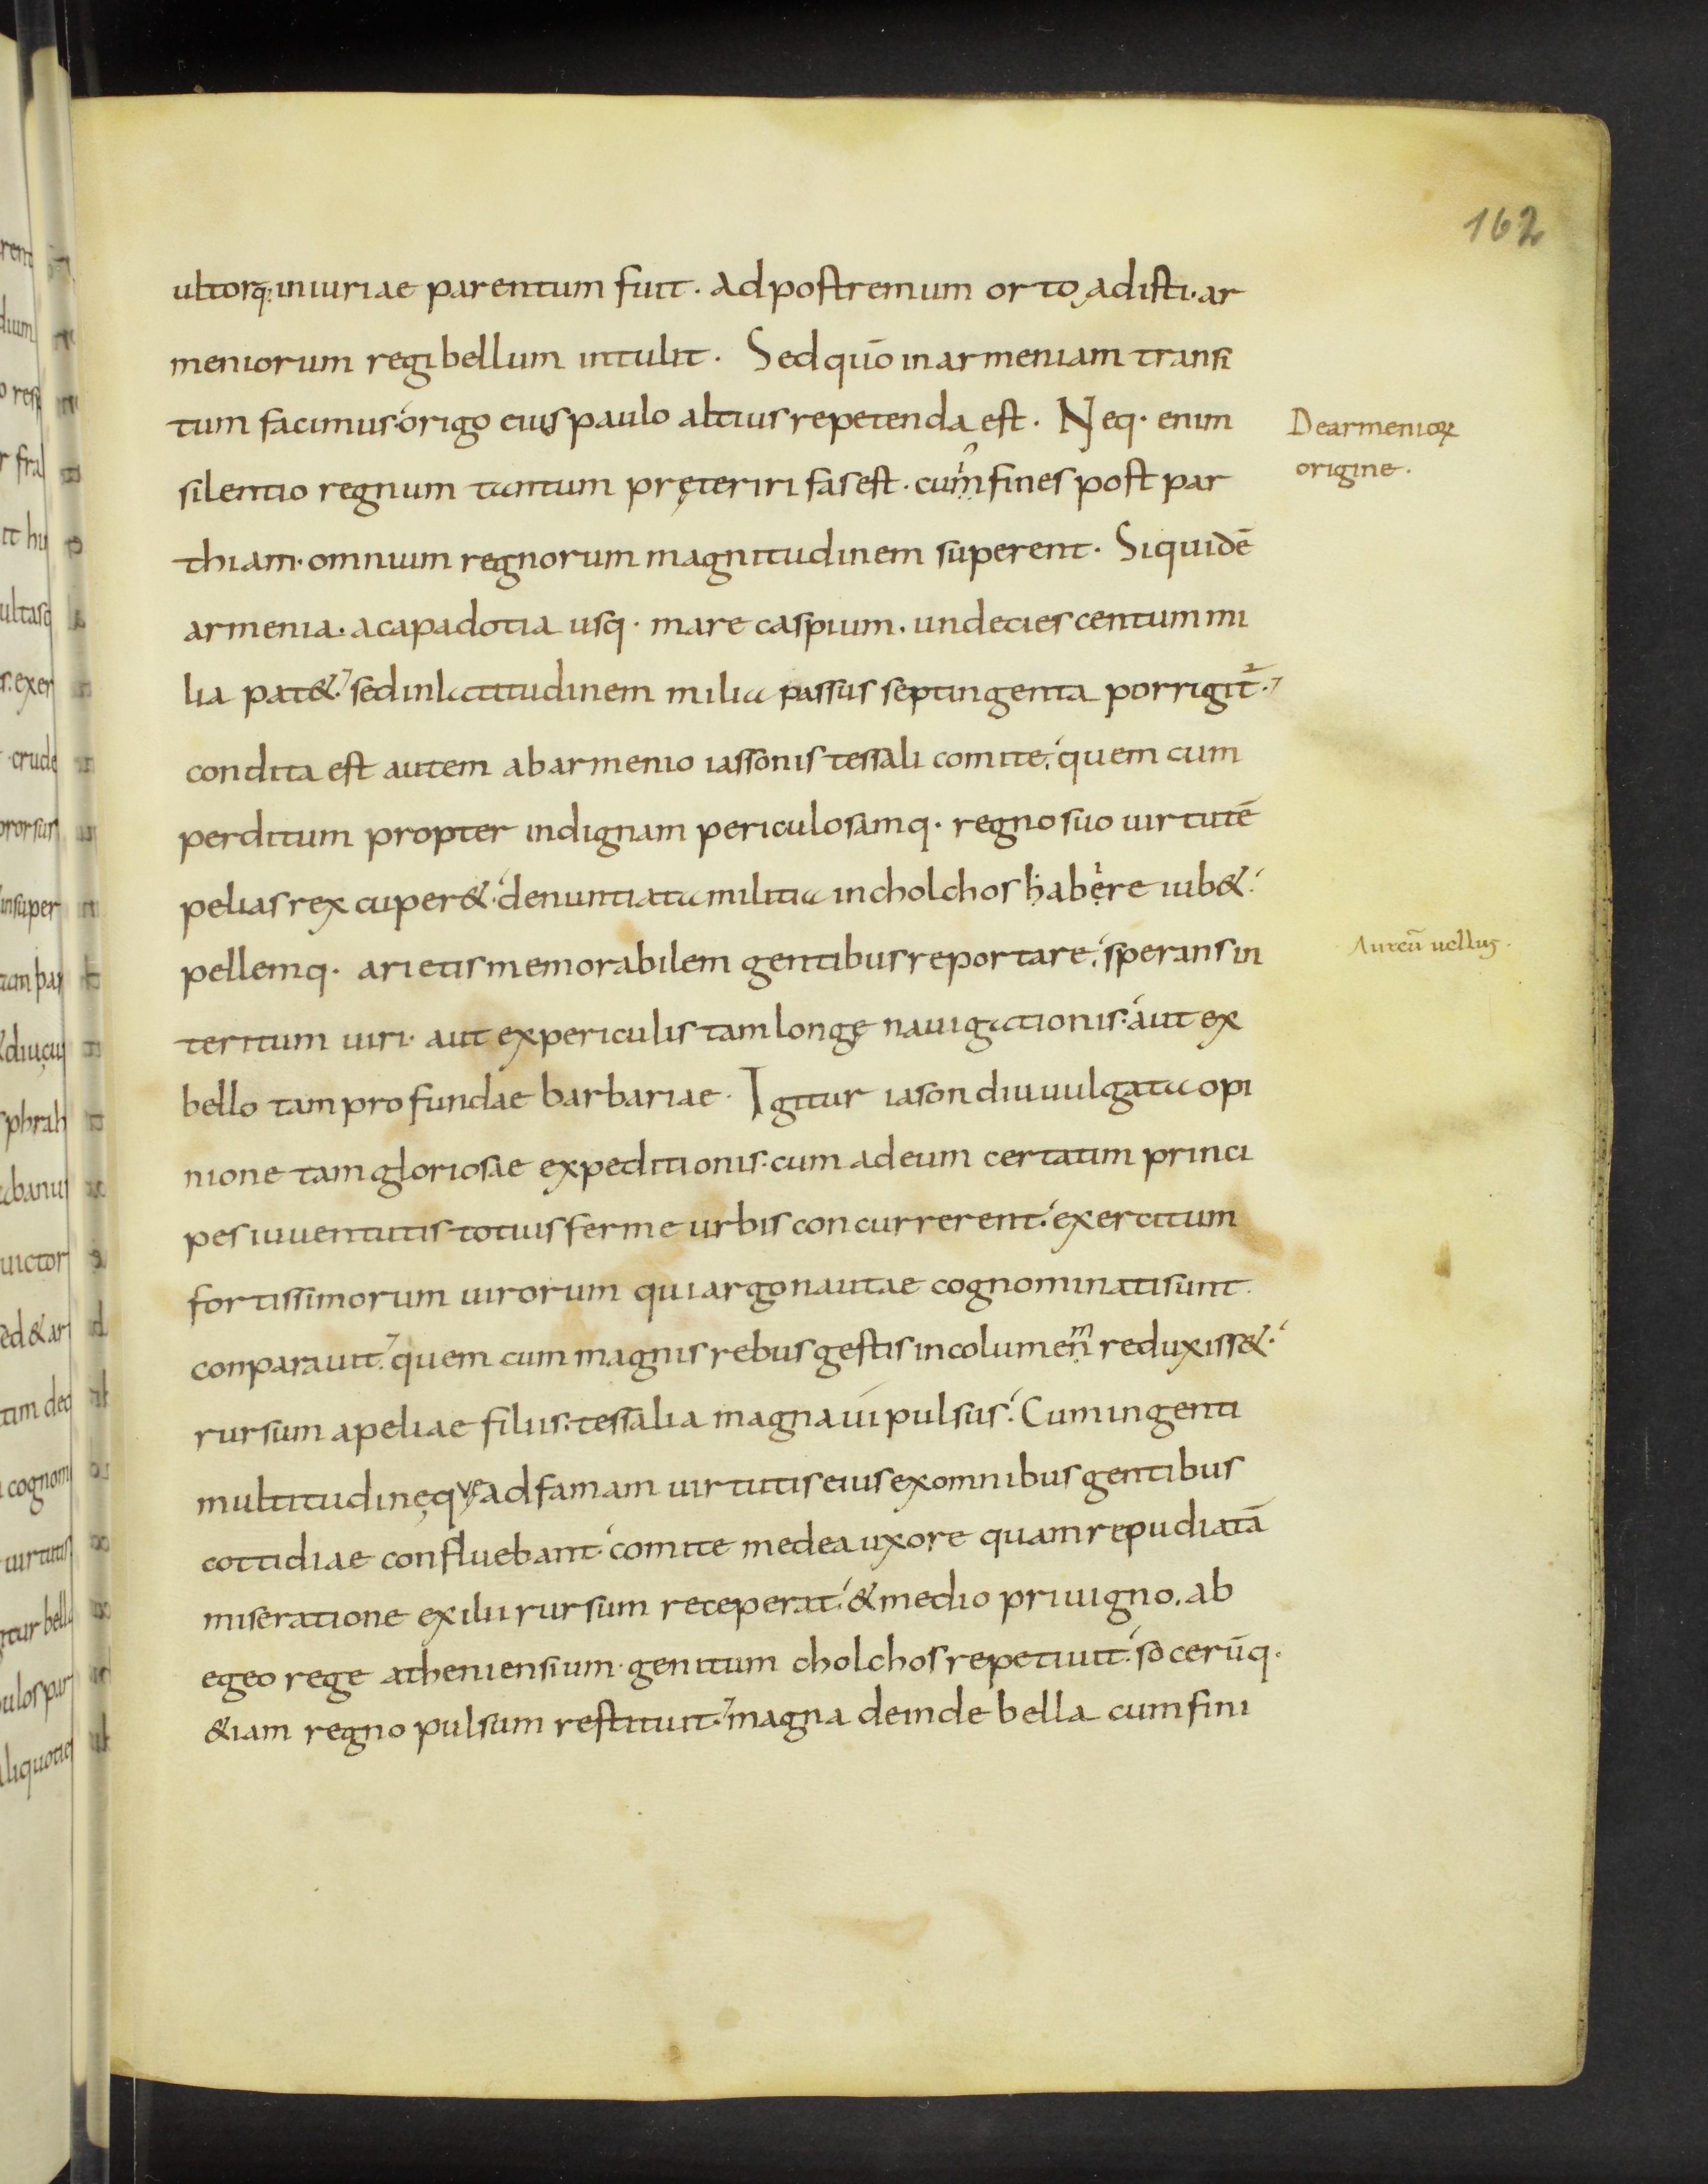 162
ultorq; iniuriae parentum fuit. Ad postremum orto adisti. ar
meniorum regi bellum intulit. Sed quō in armeniam transi
tum facimus. origo eius paulo altius repetenda est. Neq. enim
silentio regnum tantum pręteriri fas est. cum fines post par
thiam. omnium regnorum magnitudinem superent. Siquidē
armenia. a capadotia usq. mare caspium. undecies centum mi
lia pat&. sed in latitudinem milia passus septingenta porrigit.
condita est autem ab armenio iassonis tessali comite. quem cum
perditum propter indignam periculosamq. regno suo uirtutē
pelias rex cuper&. denuntiata militia in cholchos habere iub&.
pellemq. arietis memorabilem gentibus reportare. sperans in
teritum uiri. aut ex periculis tam longę nauigationis. aut ex
bello tam profundae barbariae. Igitur iason diuuulgata opi
nione tam gloriosae expeditionis. cum ad eum certatim princi
pes iuuentutis totius ferme urbis concurrerent. exercitum
fortissimorum uirorum qui argonautae cognominati sunt.
comparauit. quem cum magnis rebus gestis incolumem reduxiss&.
rursum a peliae filiis. tessalia magna ui pulsus. Cum ingenti
multitudine que ad famam uirtutis eius ex omnibus gentibus
cottidiae confluebant. comite medea uxore quam repudiatā
miseratione exilii rursum receperat. & medio priuigno. ab
egeo rege atheniensium. genitum cholchos repetiuit. socerūq.
&iam regno pulsum restituit. magna deinde bella cum fini
De armenioꝝ
origine.
Aureū uellus.